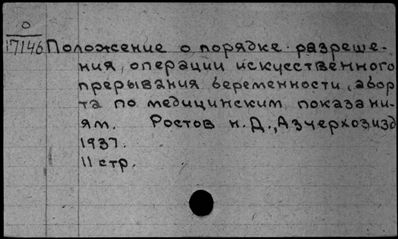 О
17146 Положение о порядке разреше-
ния, операции искусственного
прерывания беременности, абор
та по медицинским показани-
ям. Ростов н.Д., Азчерхозизд
1937.
11 стр.